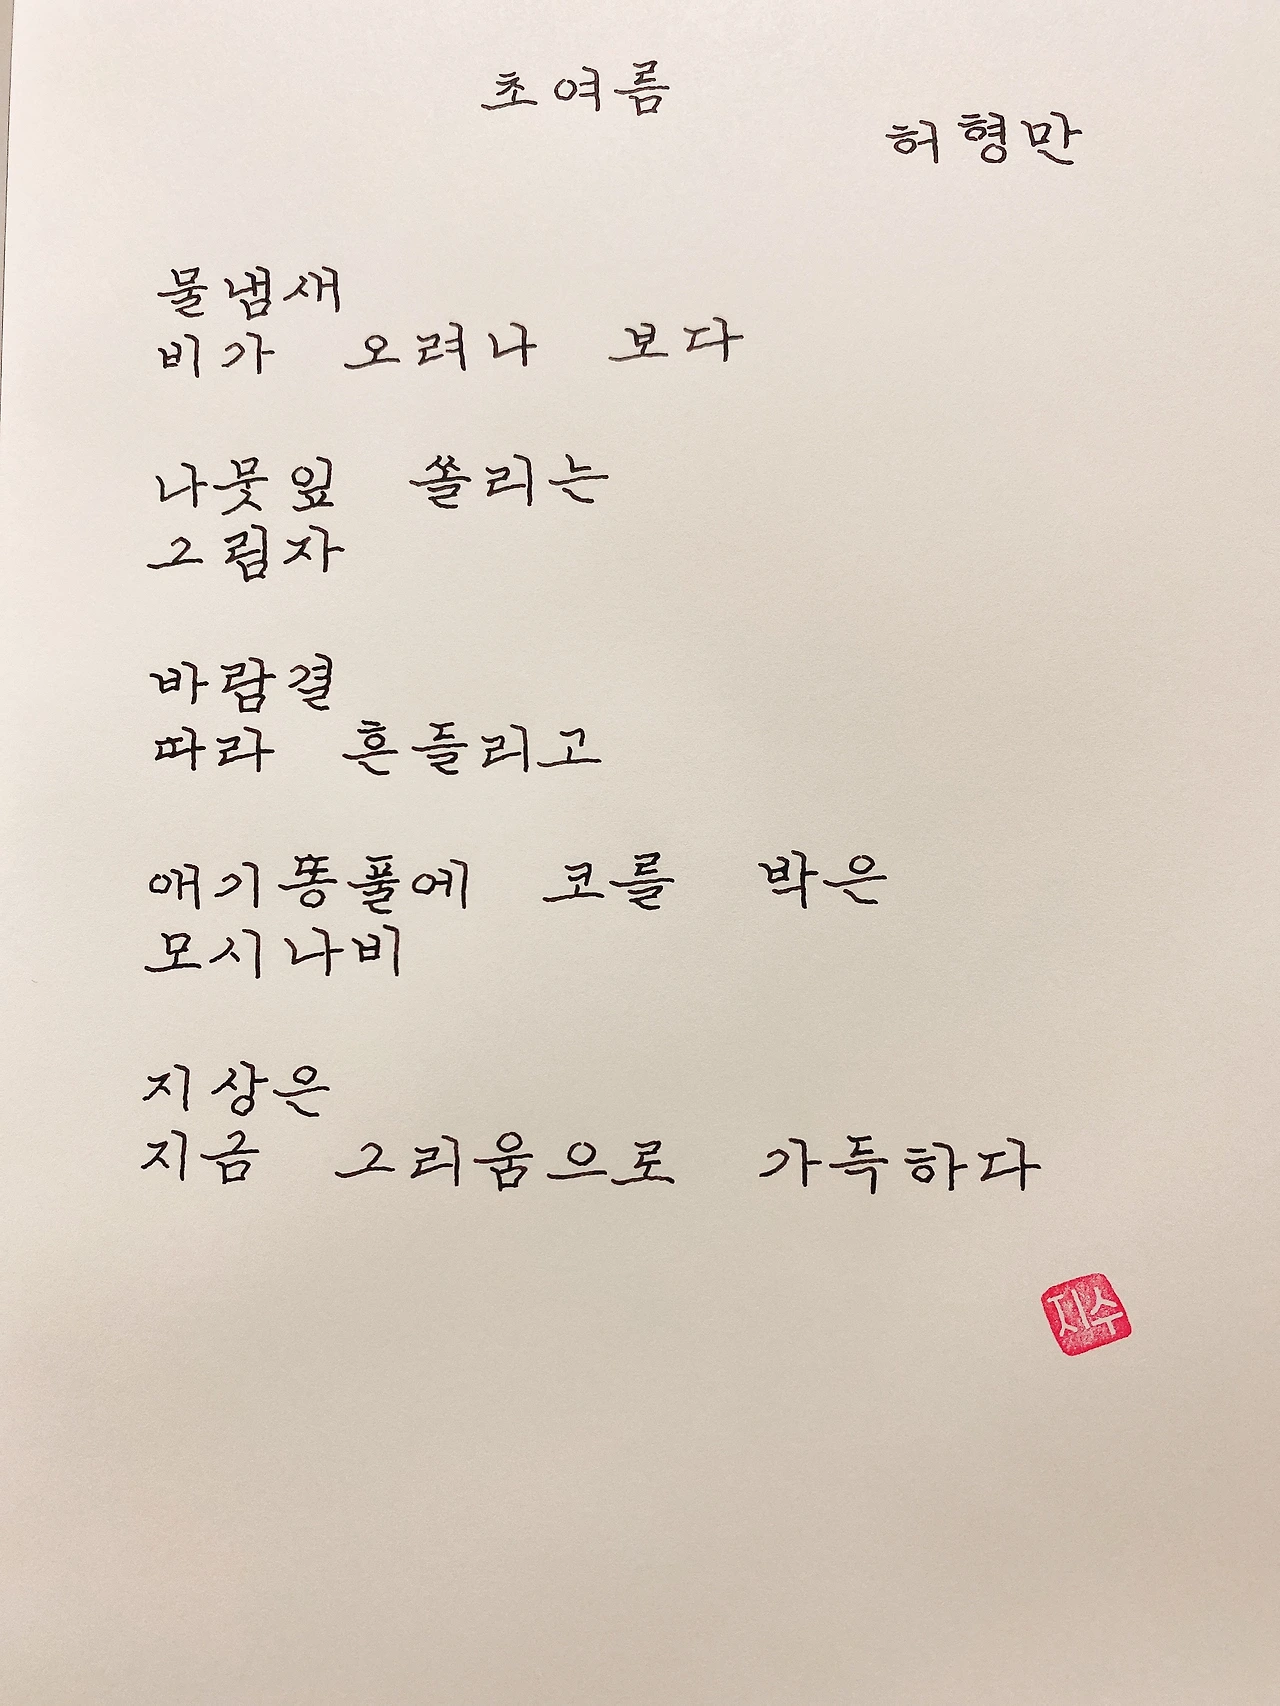 초여름
허형만
물냄새
비가 오려나 보다
나뭇잎 쏠리는
그림자
바람결
따라 흔들리고
애기똥풀에 코를 박은
모시나비
지상은
지금 그리움으로 가득하다
지수